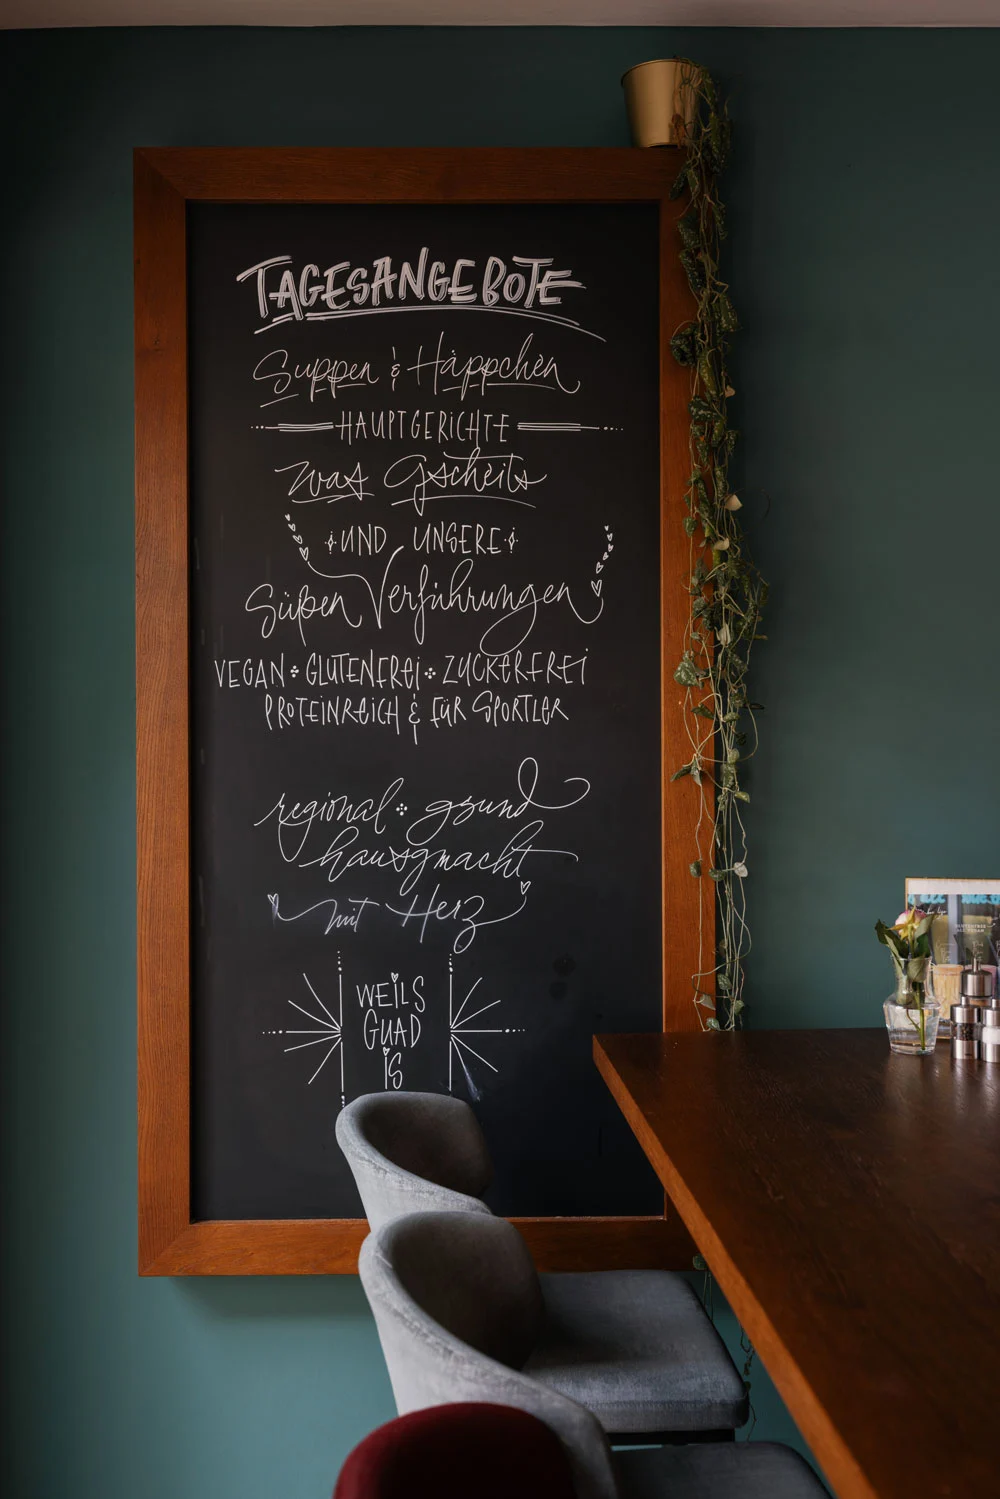 TAGESANGEBOTE
Suppen & Häppchen
HAUPTGERICHTE
zwas Gscheits
UND UNSERE
Süßen Verführungen
VEGAN GLUTENFREI ZUCKERFREI
PROTEINREICH & FÜR SPORTLER
regional gsund
hausgmacht
mit Herz
WEILS
GUAD
iS